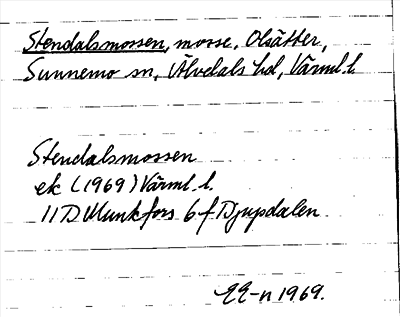 Stendalsmossen, mosse, Olsätter,
Sunnemo sn, Älvdals hd, Värml. l.
Stendalsmossen
ek (1969) Värml. l.
11D Munkfors 6 f Djupdalen
EE-n 1969.